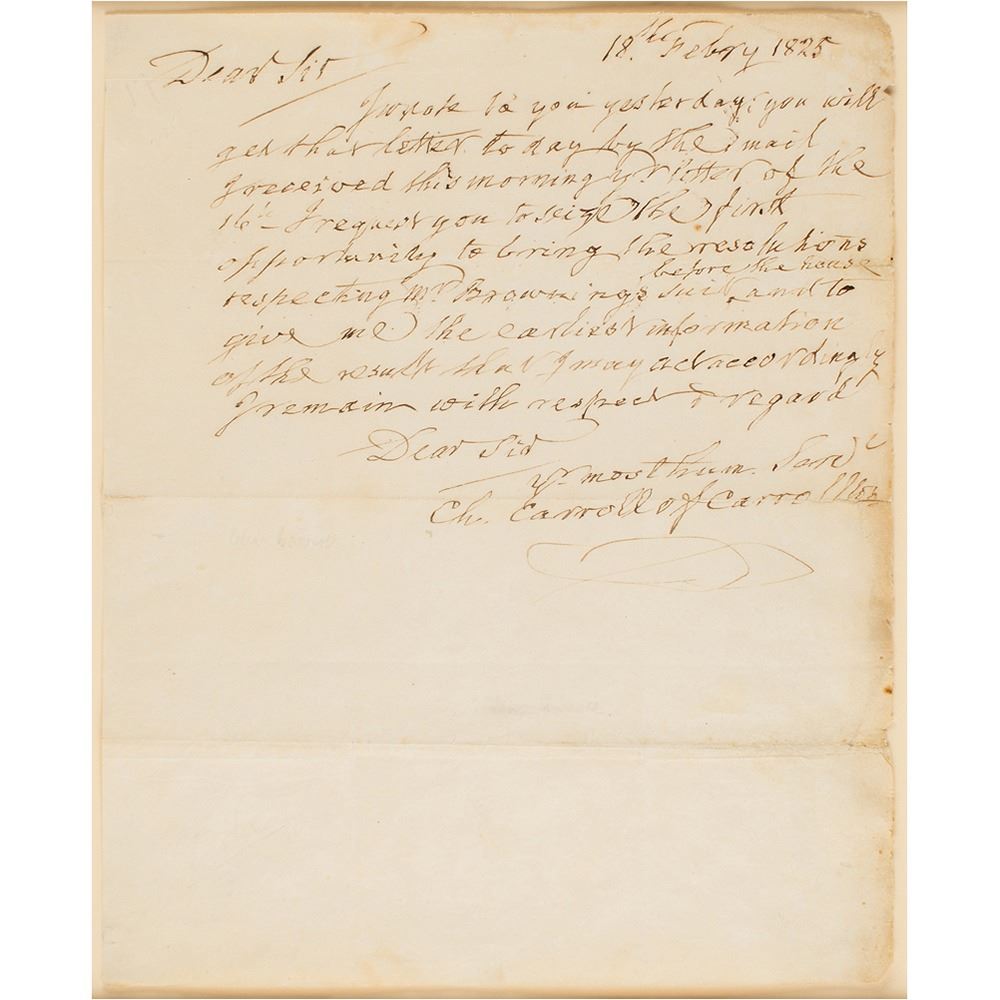 18.th Febry 1825
Dear Sir
I wrote to you yesterday; you will
get that letter to day by the mail
I received this morning yr letter of the
16th I request you to seize the first
opportunity to bring the resolutions
before the house
respecting Mr Brownings suit and to
give me the earliest information
of the result that I may act accordingly
I remain with respect & regard
Dear Sir
yr. most hum. Servt
Ch. Carroll of Carrollton